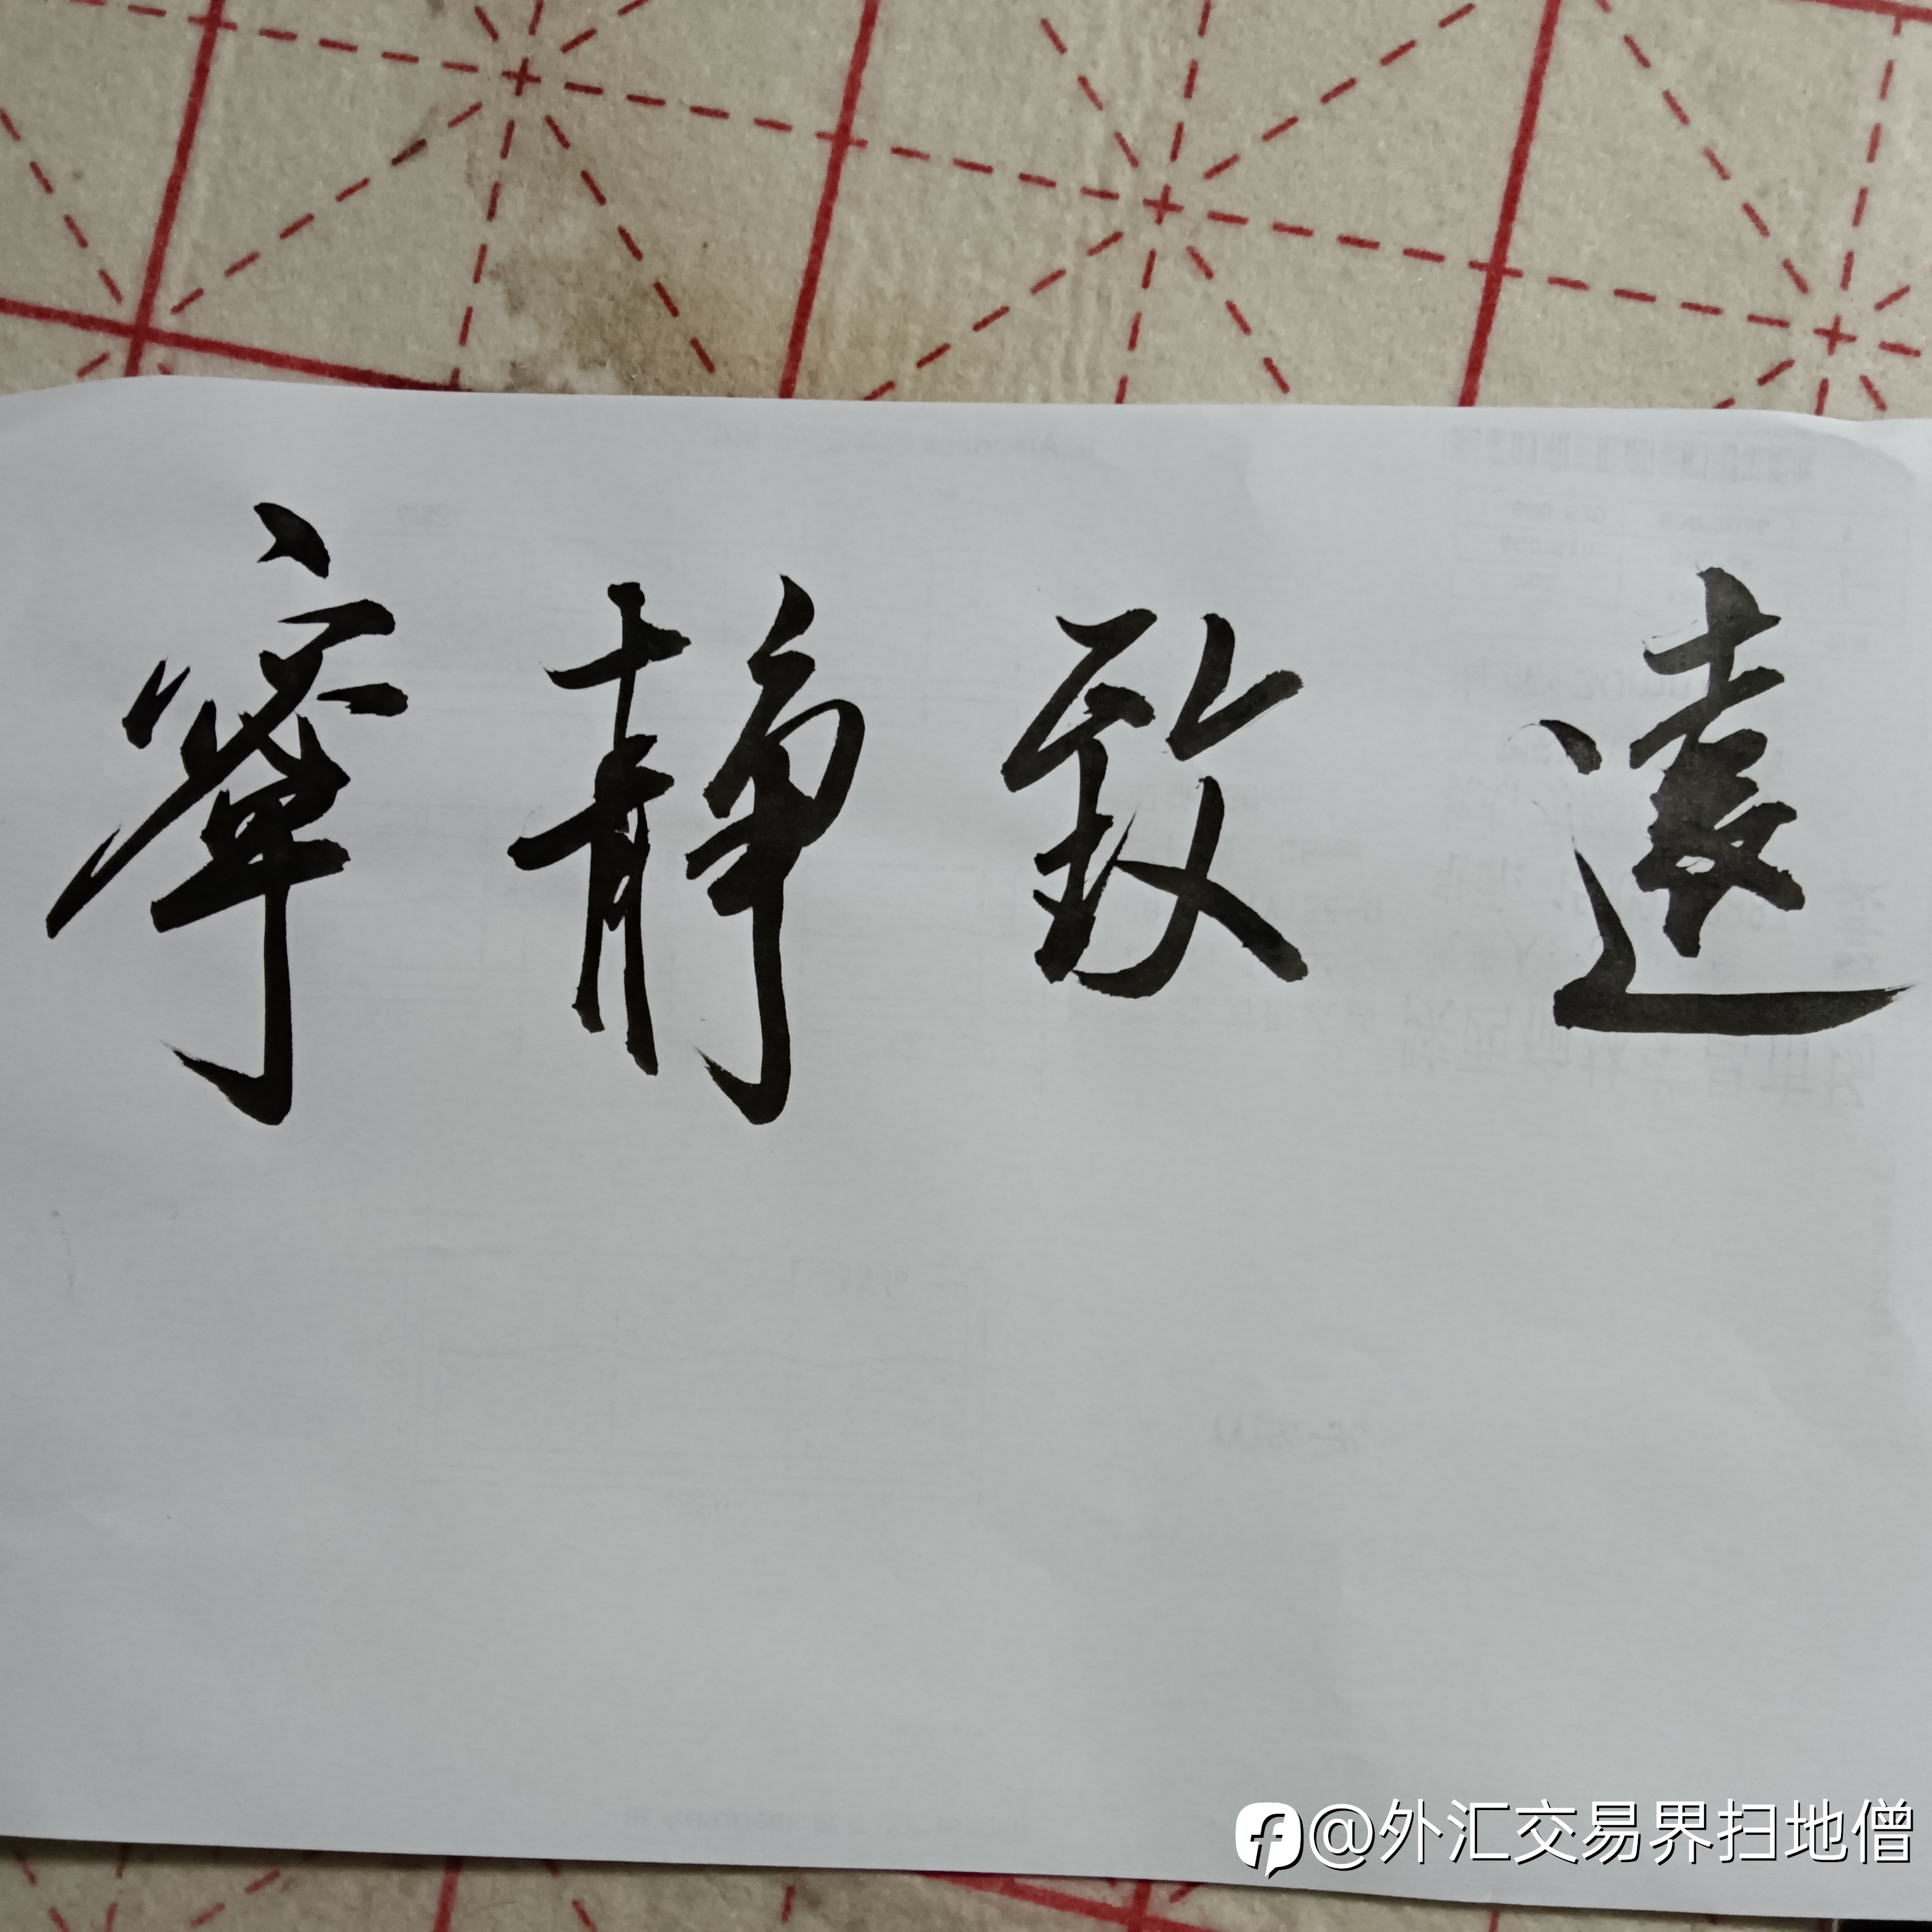 寧靜致遠
@外汇交易界扫地僧